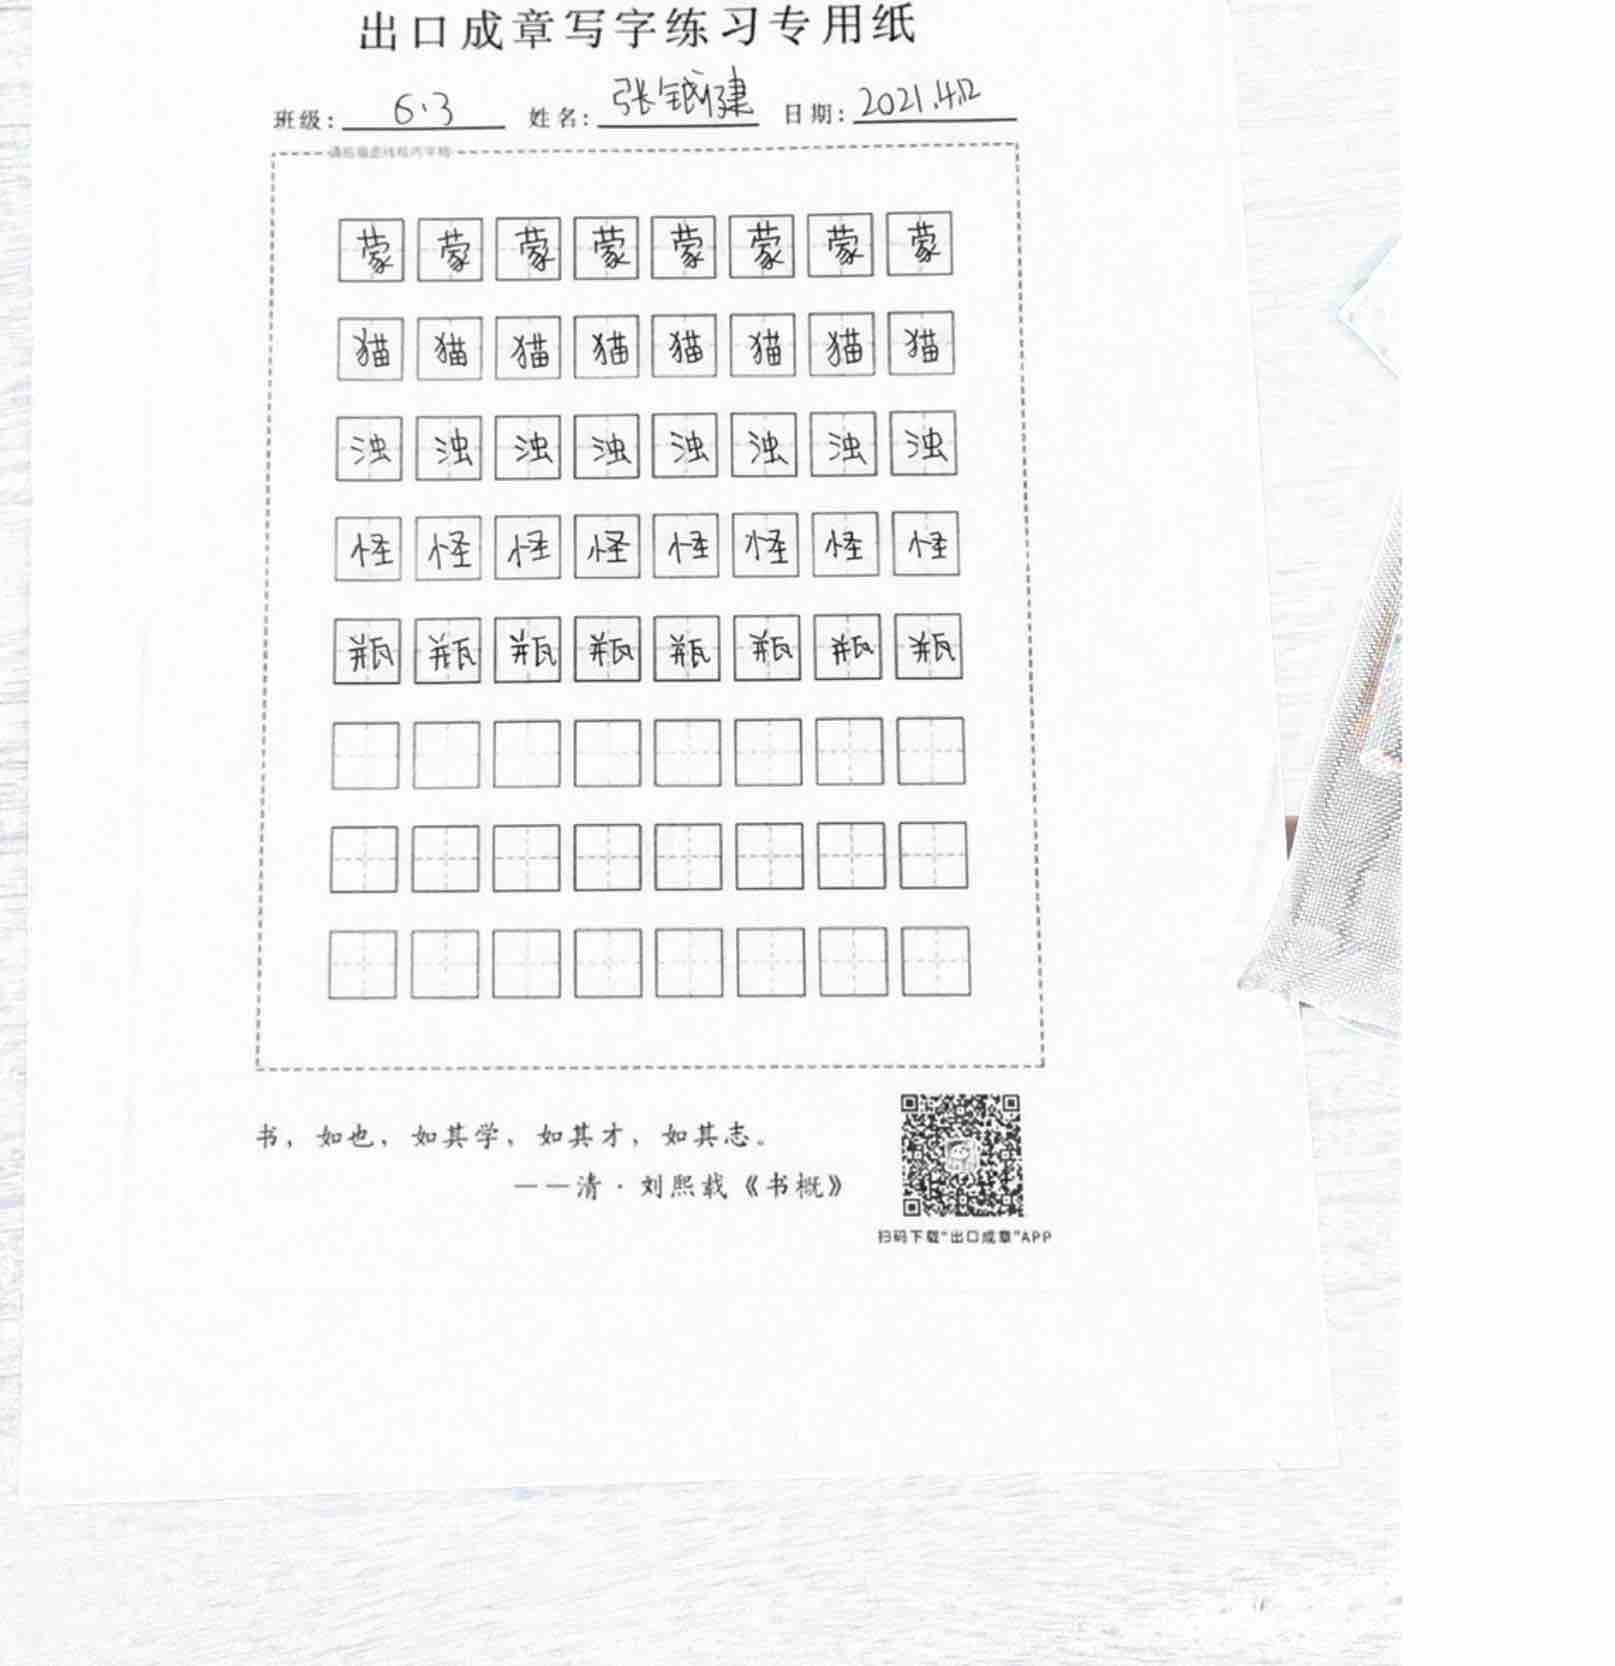 出口成章写字练习专用纸
班级: 6.3 姓名: 张钺健 日期: 2021.4.12
请拍摄虚线框内字格
蒙 蒙 蒙 蒙 蒙 蒙 蒙 蒙
猫 猫 猫 猫 猫 猫 猫 猫
浊 浊 浊 浊 浊 浊 浊 浊
怪 怪 怪 怪 怪 怪 怪 怪
瓶 瓶 瓶 瓶 瓶 瓶 瓶 瓶
书，如也，如其学，如其才，如其志。
——清·刘熙载《书概》
扫码下载“出口成章”APP